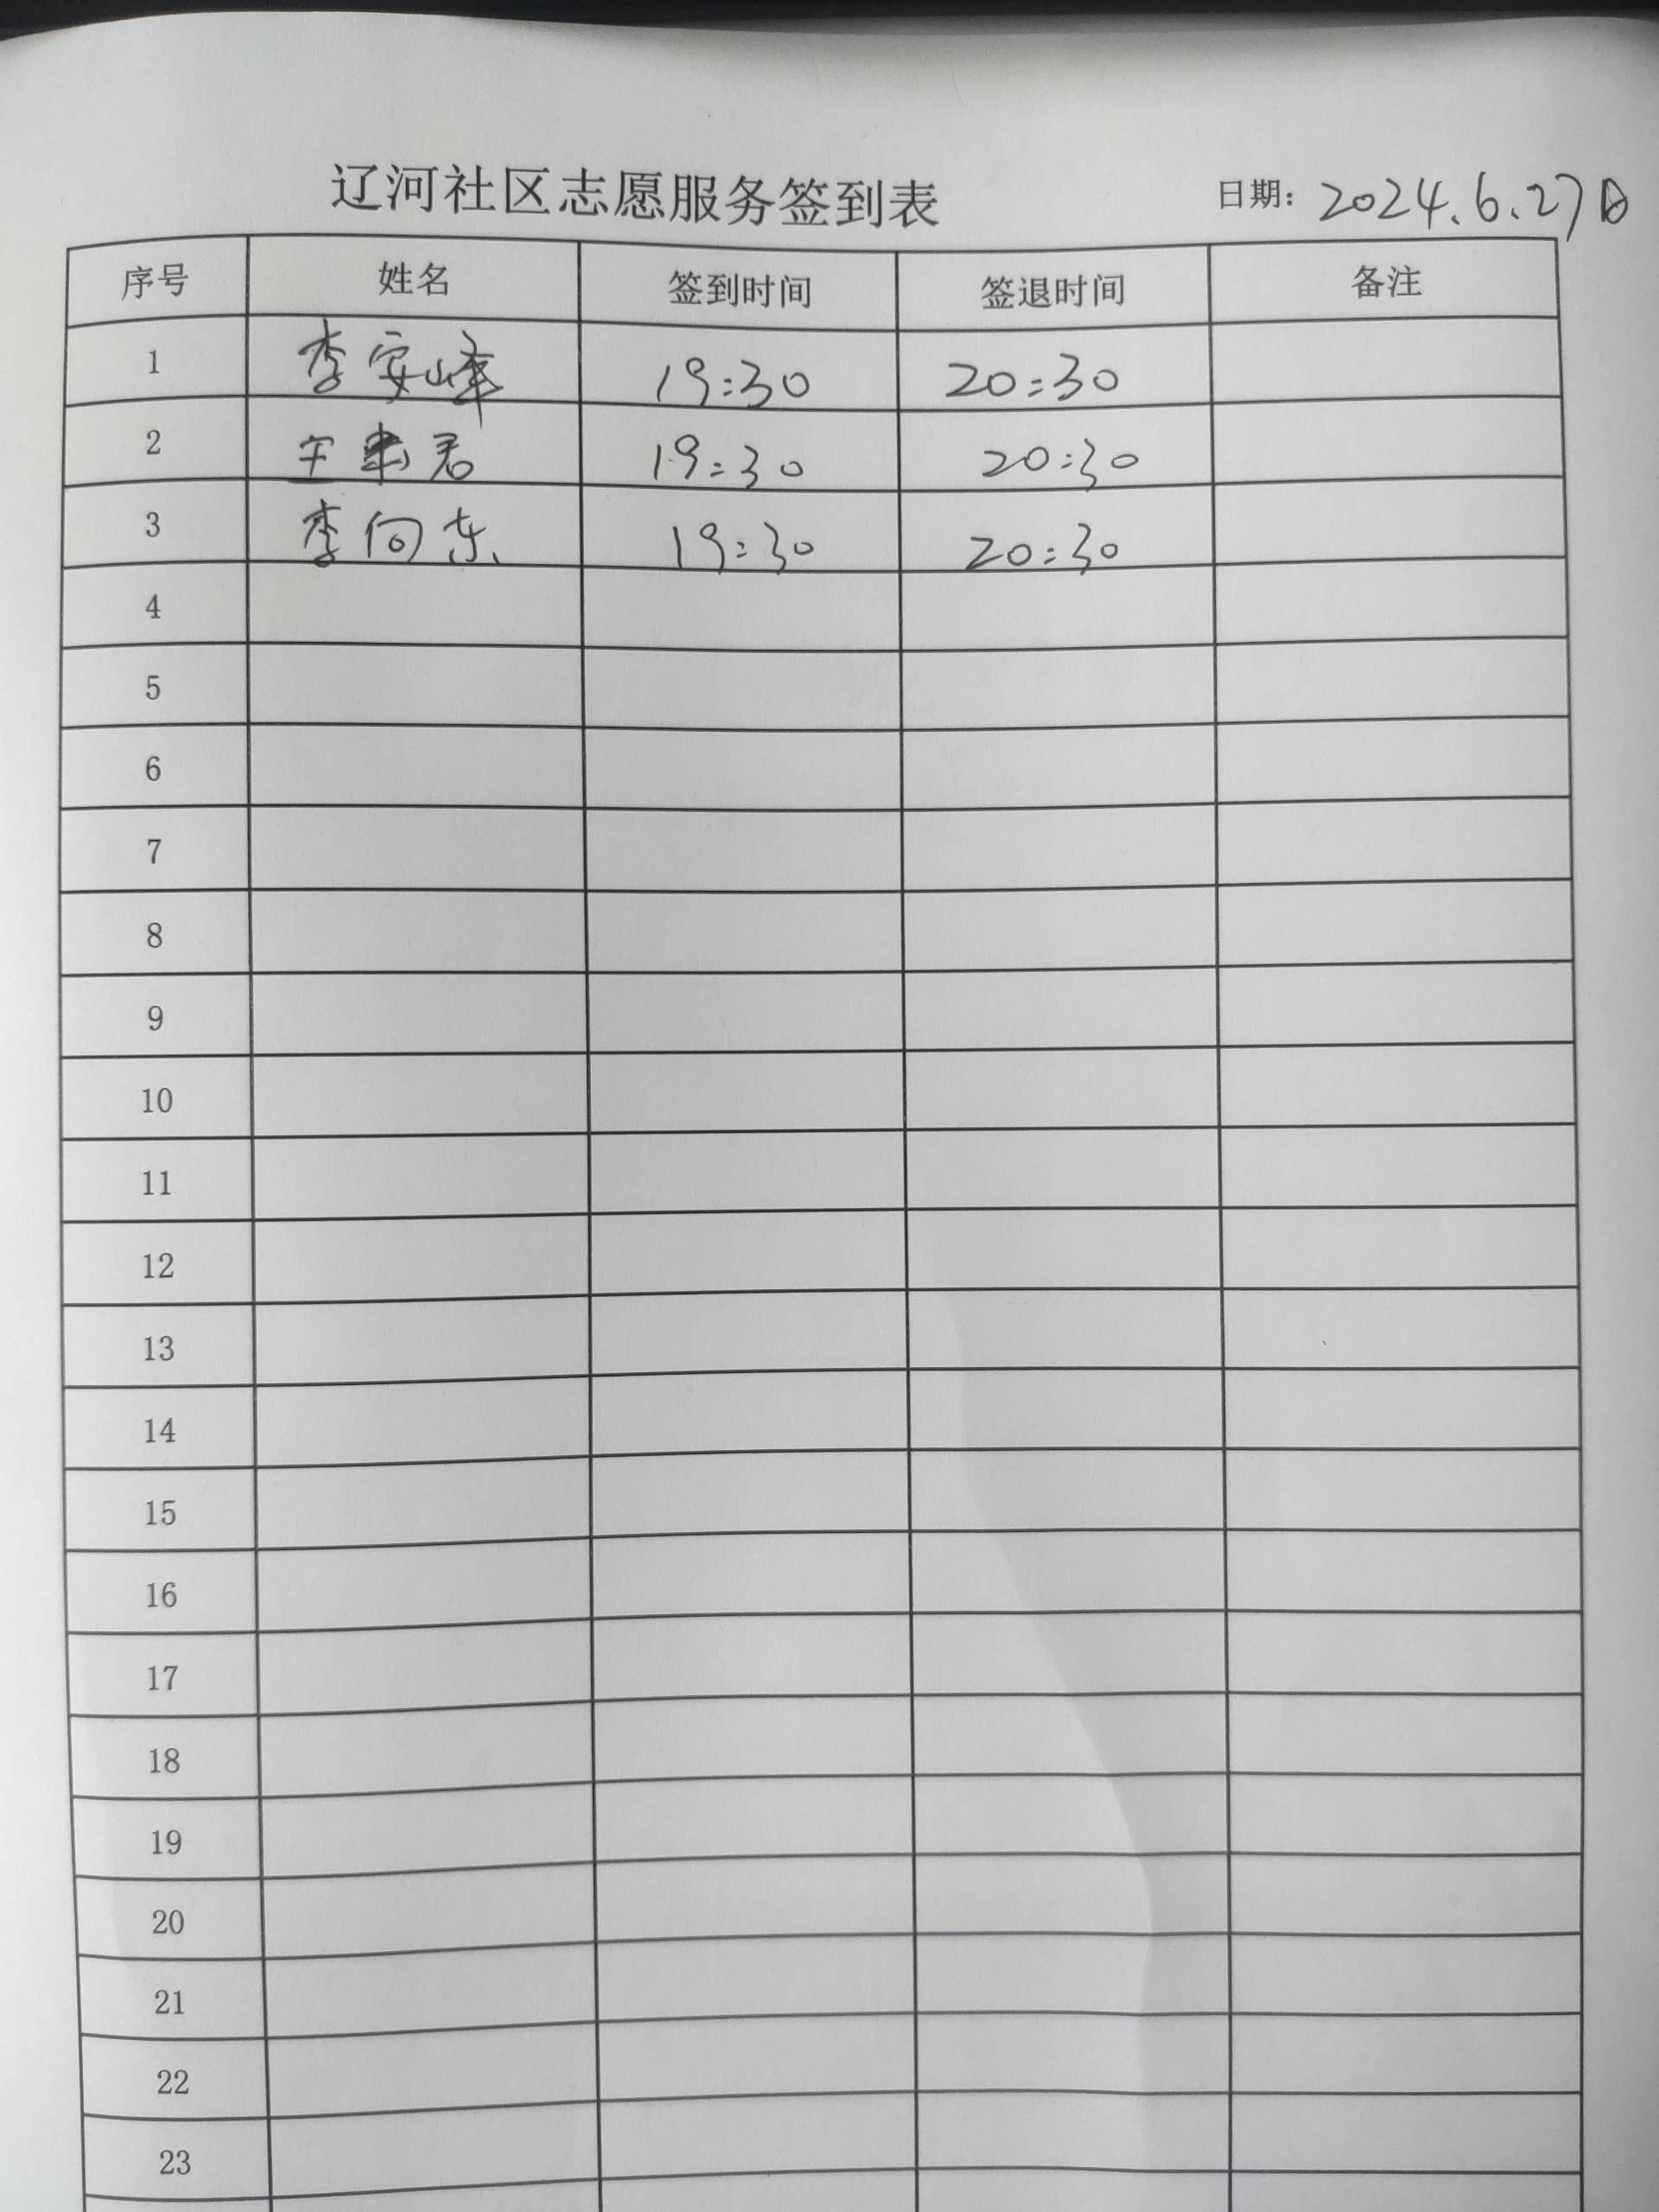 辽河社区志愿服务签到表 日期：2024.6.27日
序号 姓名 签到时间 签退时间 备注
1 李安峰 19:30 20:30
2 王 君 19:30 20:30
3 李向东 19:30 20:30
4
5
6
7
8
9
10
11
12
13
14
15
16
17
18
19
20
21
22
23